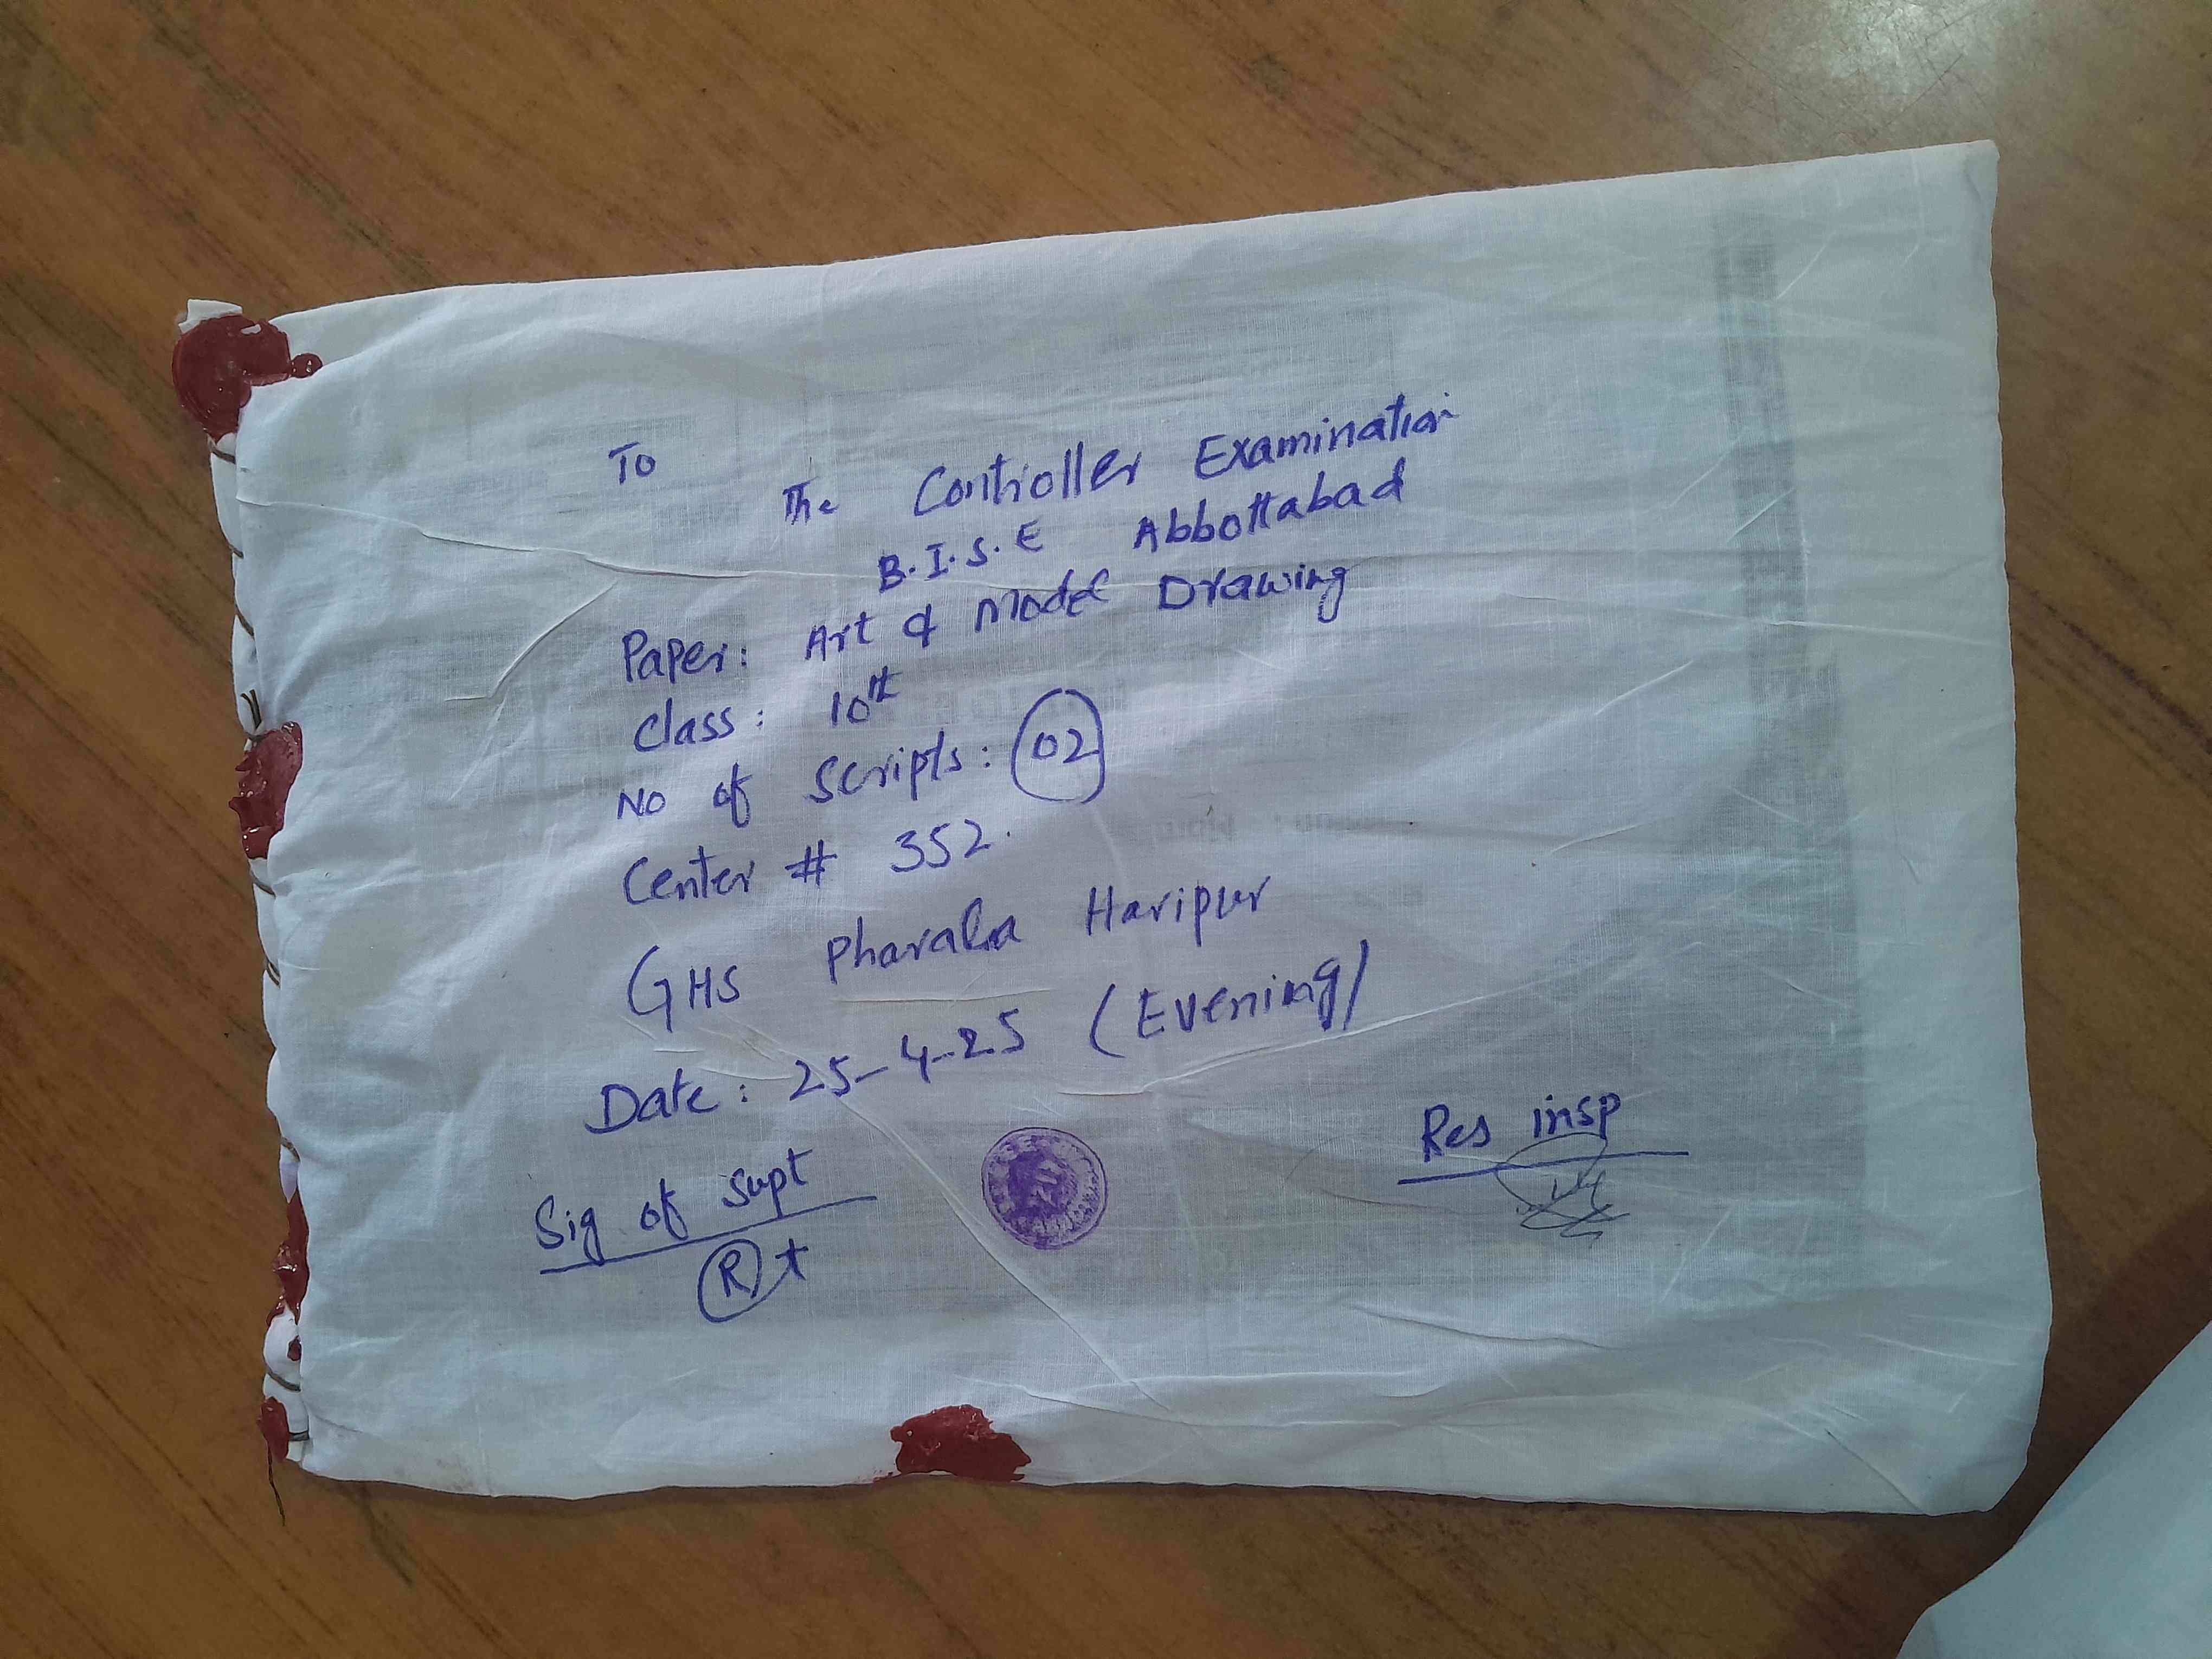 To
The Controller Examination
B.I.S.E Abbottabad
Paper: Art & Model Drawing
Class: 10th
No of Scripts: 02
Center # 352.
GHS Pharala Haripur
Date: 25-4-25 (Evening)
Sig of Supt
Res insp